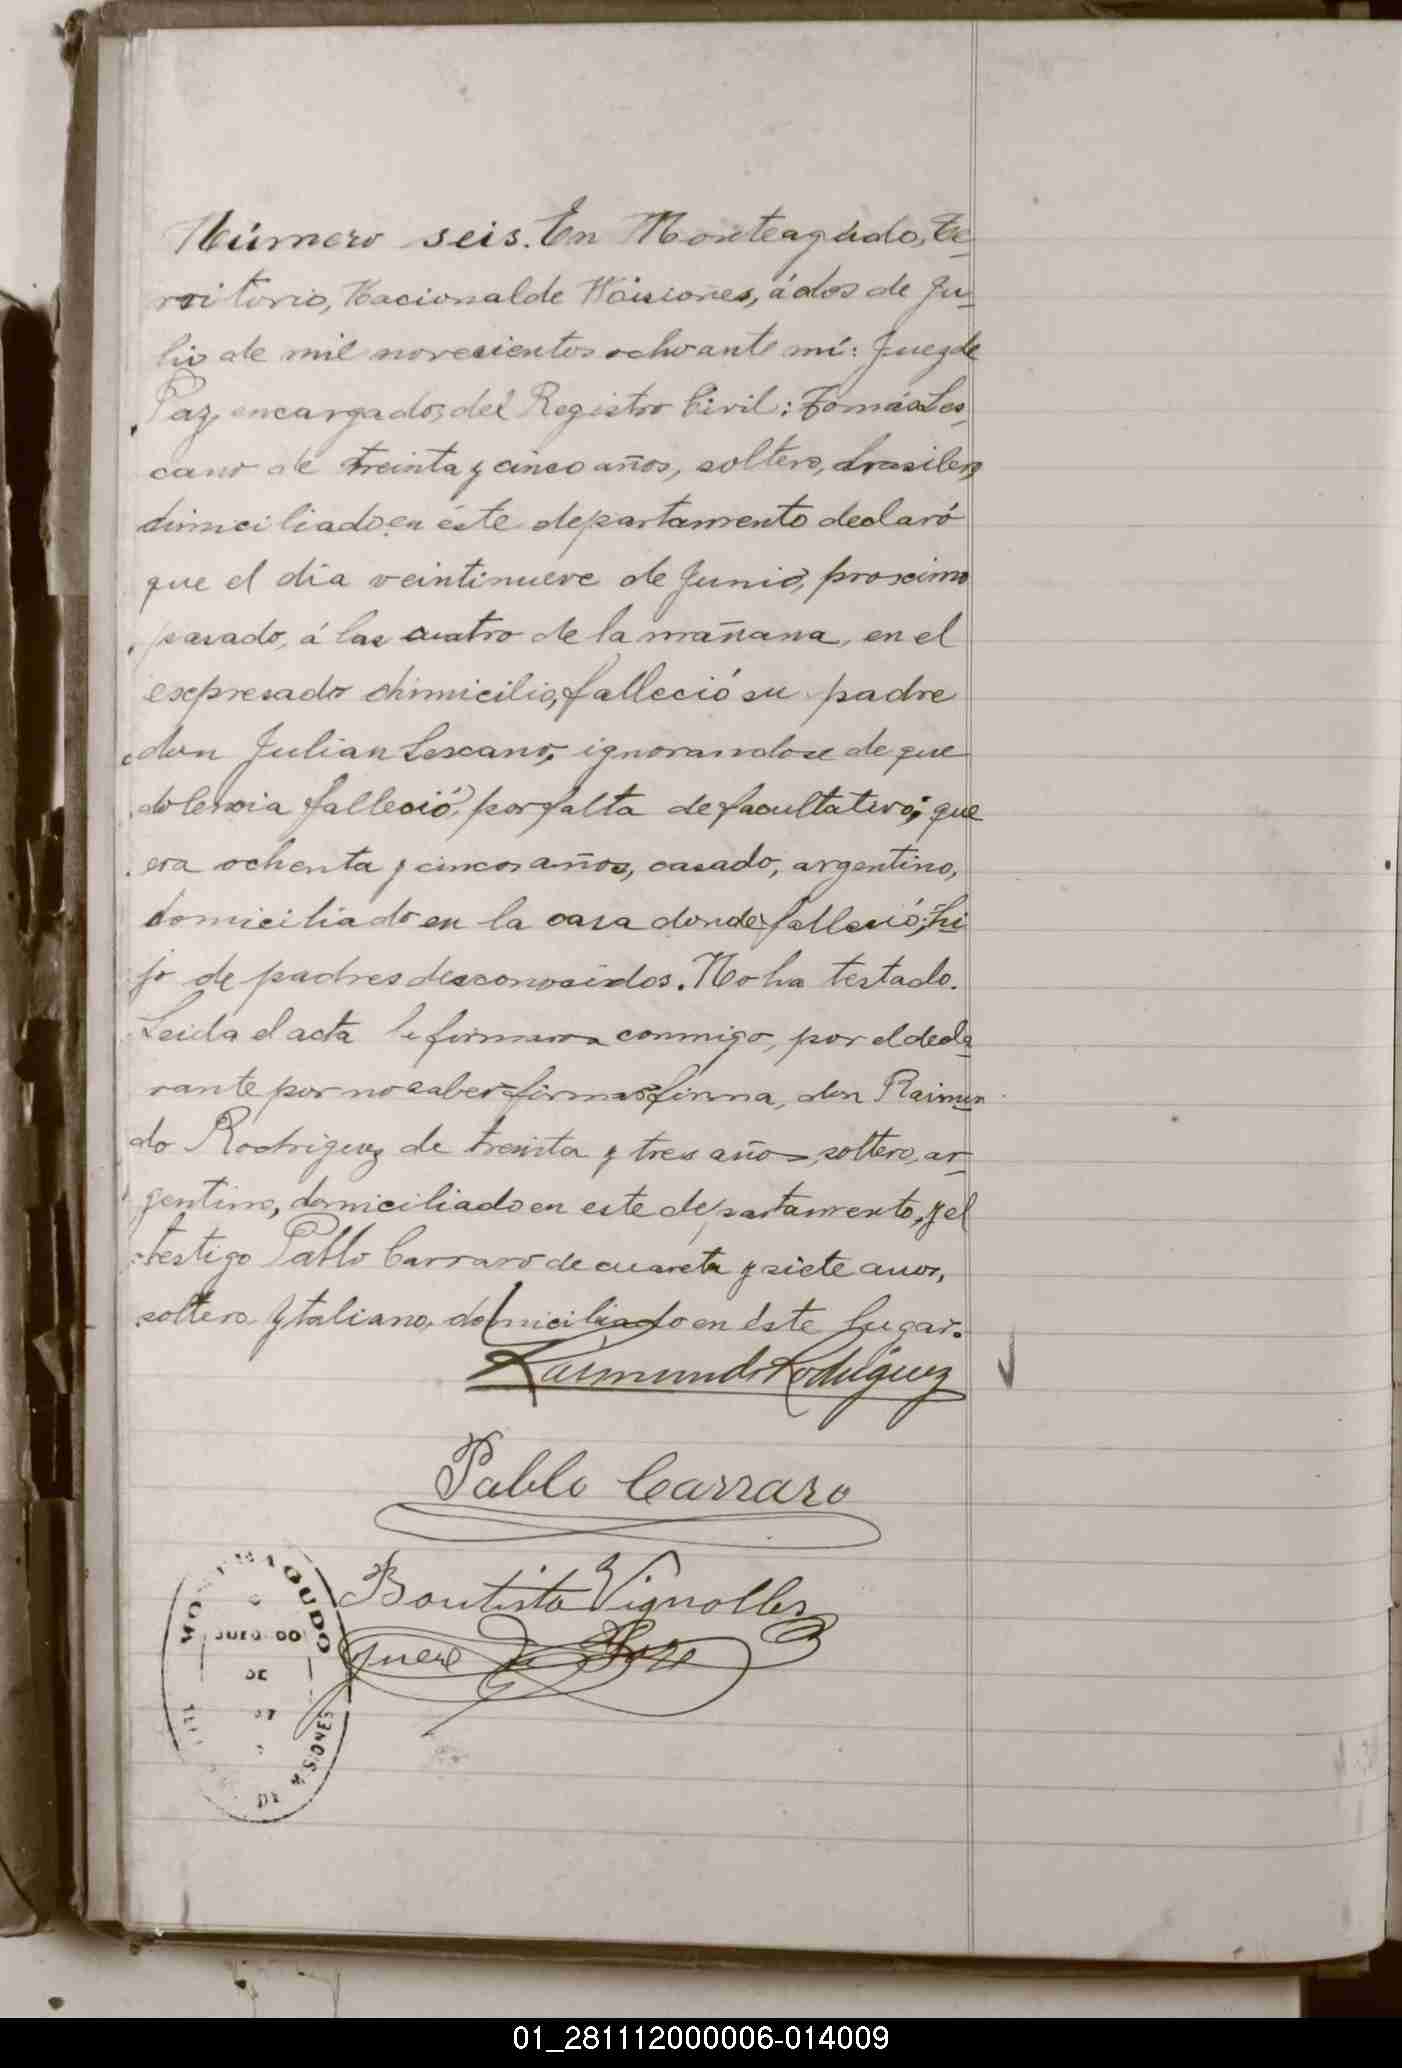 Número seis. En Monteagudo, Te-
rritorio, Nacional de Misiones, á dos de Ju-
lio de mil novecientos ocho ante mí: Juez de
Paz, encargado, del Registro Civil: Tomás Les-
cano de treinta y cinco años, soltero, brasilero,
dimiciliado en éste departamento declaró
que el dia veintinueve de Junio, proximo
pasado, á las cuatro de la mañana, en el
expresado dimicilio, falleció su padre
don Julian Lescano, ignorandose de que
dolencia falleció, por falta de facultativo; que
era ochenta y cinco años, casado, argentino,
domiciliado en la casa donde falleció; hi
jo de padres desconosidos. No ha testado.
Leida el acta la firmaron conmigo, por el decla-
rante por no saber firmar firma, don Raimun
do Rodriguez de treinta y tres años, soltero, ar-
gentino, domiciliado en este departamento, y el
testigo Pablo Carraro de cuareta y siete años,
soltero Ytaliano, domiciliado en éste lugar.
Raimundo Rodriguez
Pablo Carraro
Bautista Vignolles
Juez de Paz
MONTEAGUDO
JUZGADO
DE
DE MISIONES
01_281112000006-014009